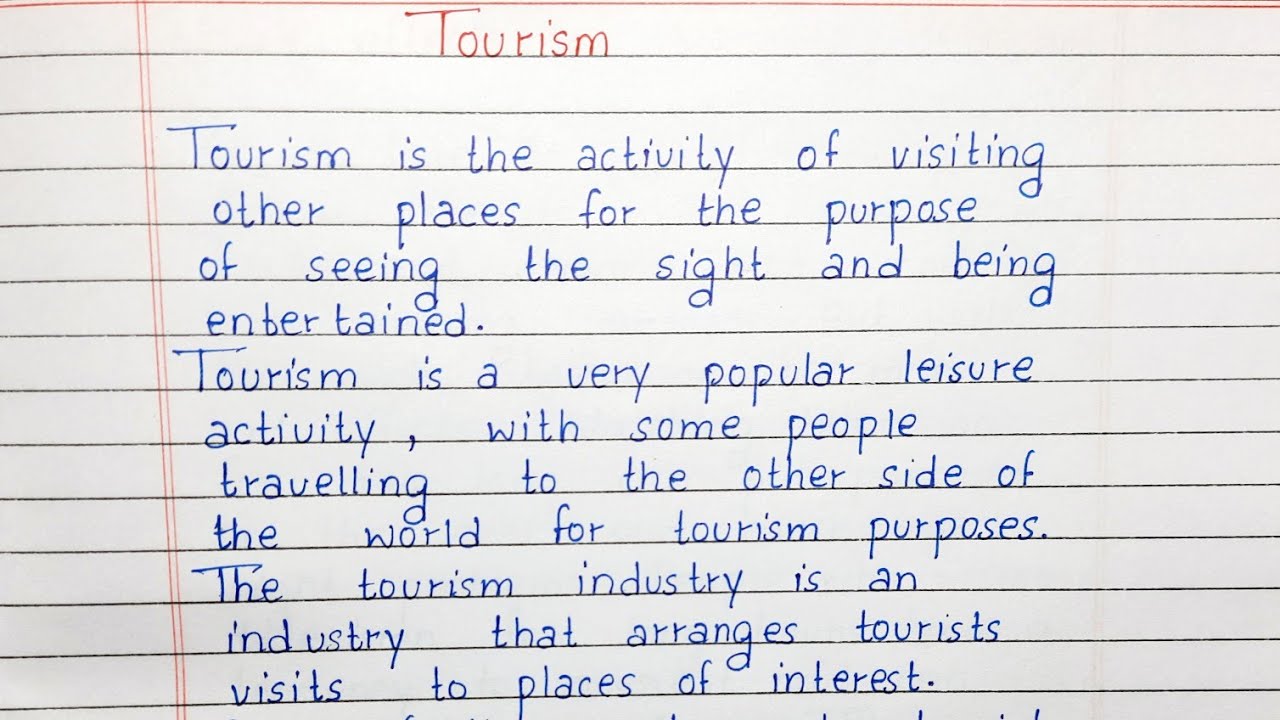 Tourism
Tourism is the activity of visiting
other places for the purpose
of seeing the sight and being
entertained.
Tourism is a very popular leisure
activity, with some people
travelling to the other side of
the world for tourism purposes.
The tourism industry is an
industry that arranges tourists
visits to places of interest.